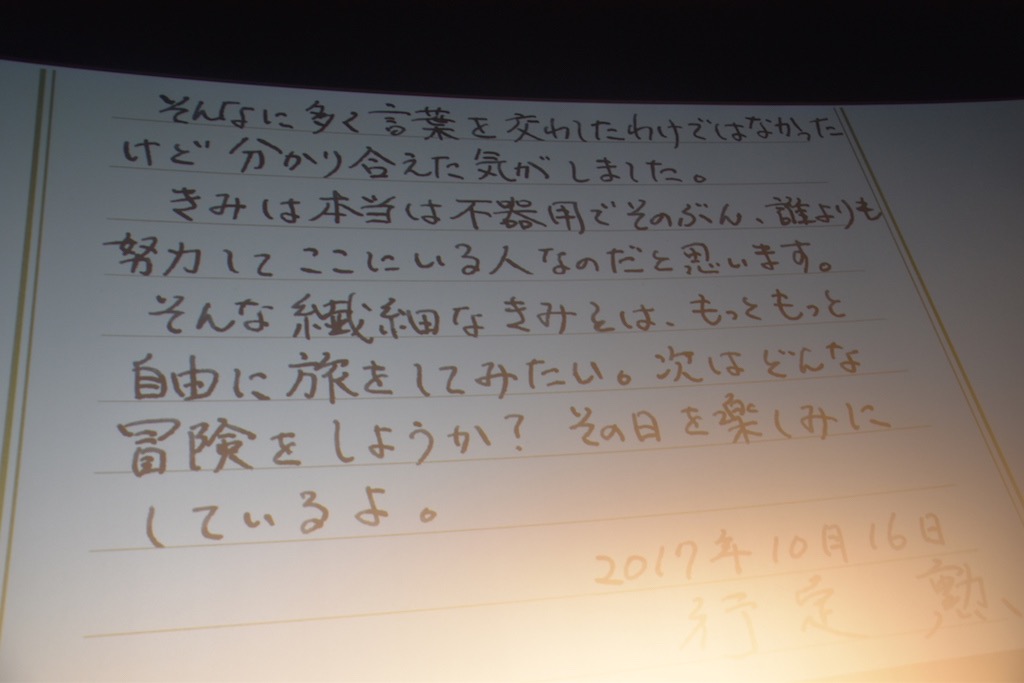 そんなに多く言葉を交わしたわけではなかった
けど分かり合えた気がしました。
きみは本当は不器用でそのぶん、誰よりも
努力してここにいる人なのだと思います。
そんな繊細なきみとは、もっともっと
自由に旅をしてみたい。次はどんな
冒険をしようか？その日を楽しみに
しているよ。
2017年10月16日
行定 勲